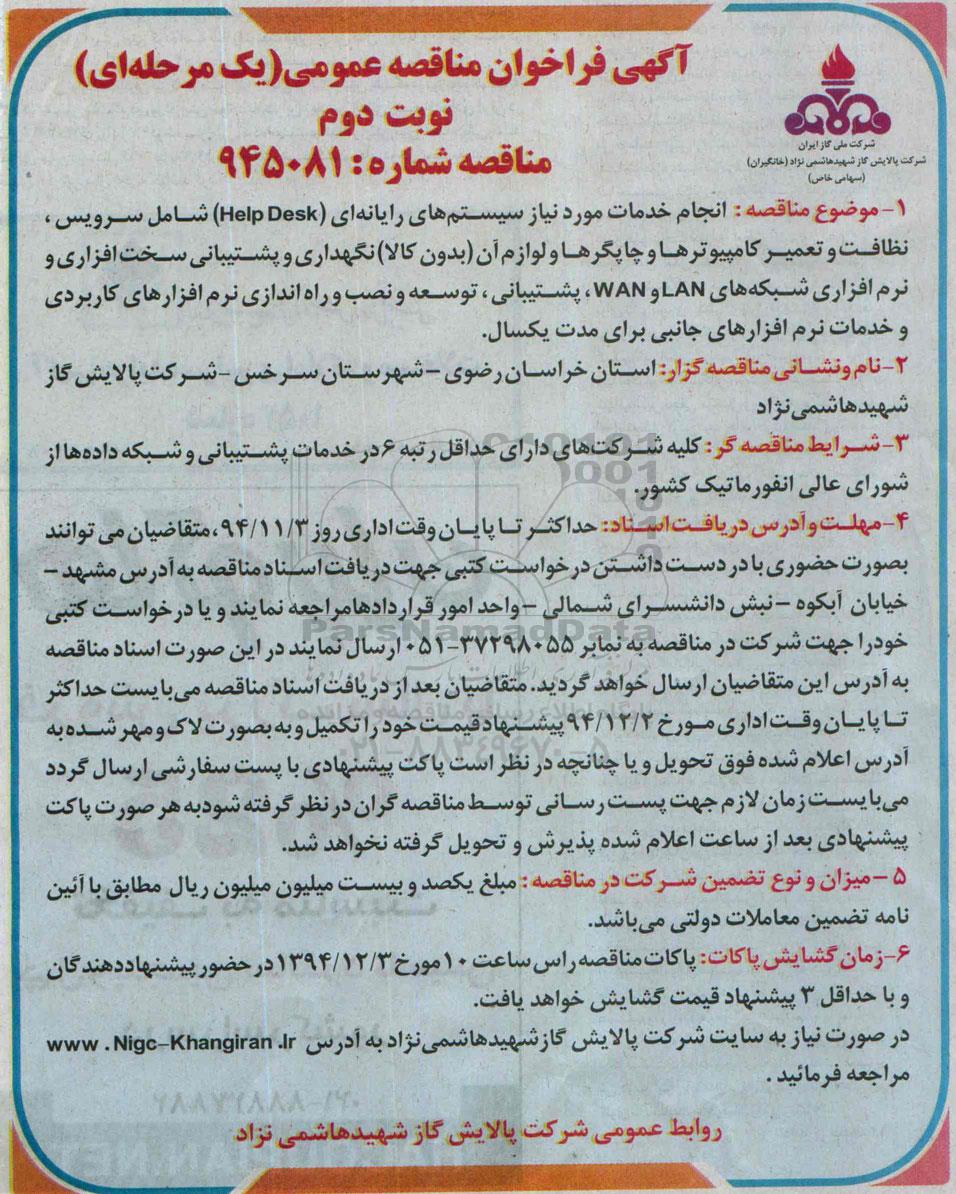 آگهی فراخوان مناقصه عمومی(یک مرحله‌ای)
نوبت دوم
مناقصه شماره: ۹۴۵۰۸۱
شرکت ملی گاز ایران
شرکت پالایش گاز شهیدهاشمی نژاد (خانگیران)
(سهامی خاص)
۱- موضوع مناقصه: انجام خدمات مورد نیاز سیستم‌های رایانه‌ای (Help Desk) شامل سرویس،
نظافت و تعمیر کامپیوترها و چاپگرها و لوازم آن (بدون کالا) نگهداری و پشتیبانی سخت افزاری و
نرم افزاری شبکه‌های LAN و WAN، پشتیبانی، توسعه و نصب و راه اندازی نرم افزارهای کاربردی
و خدمات نرم افزارهای جانبی برای مدت یکسال.
۲- نام و نشانی مناقصه گزار: استان خراسان رضوی – شهرستان سرخس - شرکت پالایش گاز
شهیدهاشمی‌نژاد
۳- شرایط مناقصه گر: کلیه شرکت‌های دارای حداقل رتبه ۶ در خدمات پشتیبانی و شبکه داده‌ها از
شورای عالی انفورماتیک کشور.
۴- مهلت و آدرس دریافت اسناد: حداکثر تا پایان وقت اداری روز ۹۴/۱۱/۳، متقاضیان می توانند
بصورت حضوری با در دست داشتن درخواست کتبی جهت دریافت اسناد مناقصه به آدرس مشهد –
خیابان آبکوه – نبش دانشسرای شمالی – واحد امور قراردادها مراجعه نمایند و یا درخواست کتبی
خود را جهت شرکت در مناقصه به نمابر ۳۷۲۹۸۰۵۵-۰۵۱ ارسال نمایند در این صورت اسناد مناقصه
به آدرس این متقاضیان ارسال خواهد گردید. متقاضیان بعد از دریافت اسناد مناقصه می‌بایست حداکثر
تا پایان وقت اداری مورخ ۹۴/۱۲/۲ پیشنهاد قیمت خود را تکمیل و به بصورت لاک و مهر شده به
آدرس اعلام شده فوق تحویل و یا چنانچه در نظر است پاکت پیشنهادی با پست سفارشی ارسال گردد
می‌بایست زمان لازم جهت پست رسانی توسط مناقصه گران در نظر گرفته شود به هر صورت پاکت
پیشنهادی بعد از ساعت اعلام شده پذیرش و تحویل گرفته نخواهد شد.
۵ – میزان و نوع تضمین شرکت در مناقصه: مبلغ یکصد و بیست میلیون میلیون ریال مطابق با آئین
نامه تضمین معاملات دولتی می‌باشد.
۶- زمان گشایش پاکات: پاکات مناقصه راس ساعت ۱۰ مورخ ۱۳۹۴/۱۲/۳ در حضور پیشنهاددهندگان
و با حداقل ۳ پیشنهاد قیمت گشایش خواهد یافت.
در صورت نیاز به سایت شرکت پالایش گاز شهیدهاشمی‌نژاد به آدرس www .Nigc-Khangiran .Ir
مراجعه فرمائید .
روابط عمومی شرکت پالایش گاز شهیدهاشمی نژاد
ParsNamadData
۰۲۱-۸۸۳۴۹۶۷۰-۵